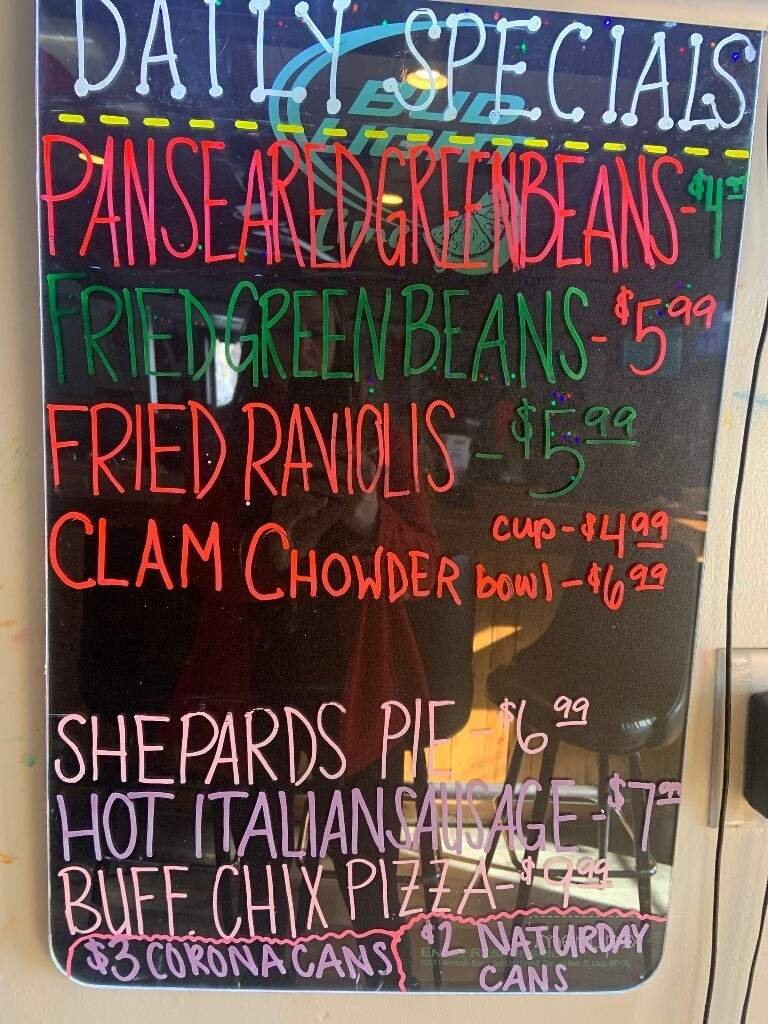 DAILY SPECIALS
BUD
LIGHT
Lime
PANSEARED GREEN BEANS - $4.99
FRIED GREEN BEANS - $5.99
FRIED RAVIOLIS - $5.99
CLAM CHOWDER cup - $4.99
bowl - $6.99
SHEPARDS PIE - $6.99
HOT ITALIAN SAUSAGE - $7.99
BUFF. CHIX PIZZA - $9.99
$3 CORONA CANS
$2 NATURDAY
CANS